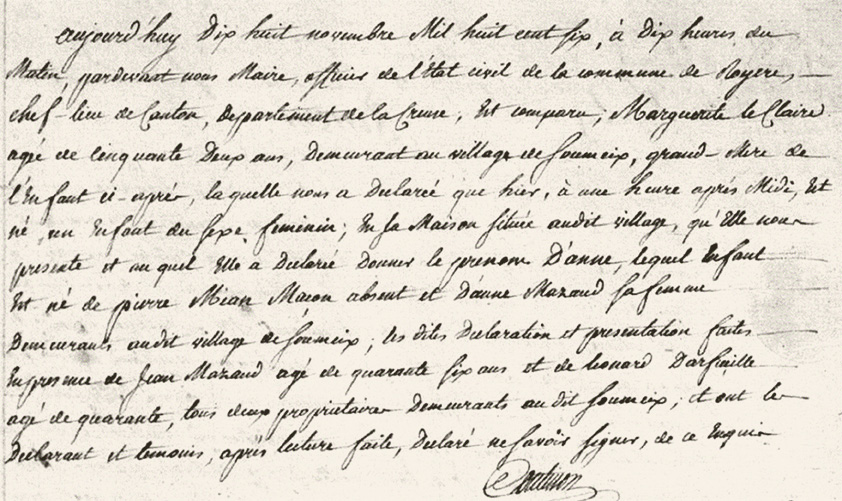 aujourd'huy Dix huit novembre Mil huit cent six, à Dix heures du
Matin, pardevant nous Maire, officier de l'État civil de la commune de Royere,
chef-lieu de Canton, departement de la Creuse, Est comparu, Marguerite le Claire
agé de cinquante Deux ans, Demeurant au village de soumeix, grand-Mere de
l'Enfant ci-aprés, laquelle nous a Declareé que hier, à une heure aprés Midi, Est
né, un Enfant du sexe feminin; En sa Maison située audit village, qu'Elle nous
presente et au quel Elle a Declareé Donner le prenom D'anne, lequel Enfant
Est né de pierre Mian Macon absent et D'anne Mazaud sa femme
Demeurants audit village de soumeix; les dites Declaration et presentation faites
En presence de Jean Mazaud agé de quarante six ans et de leonard Darfeuille
agé de quarante, tous deux proprietaires Demeurants au dit soumeix; et ont les
Declarant et temoins, aprés lecture faite, Declaré ne savoir signer, de ce Enquis